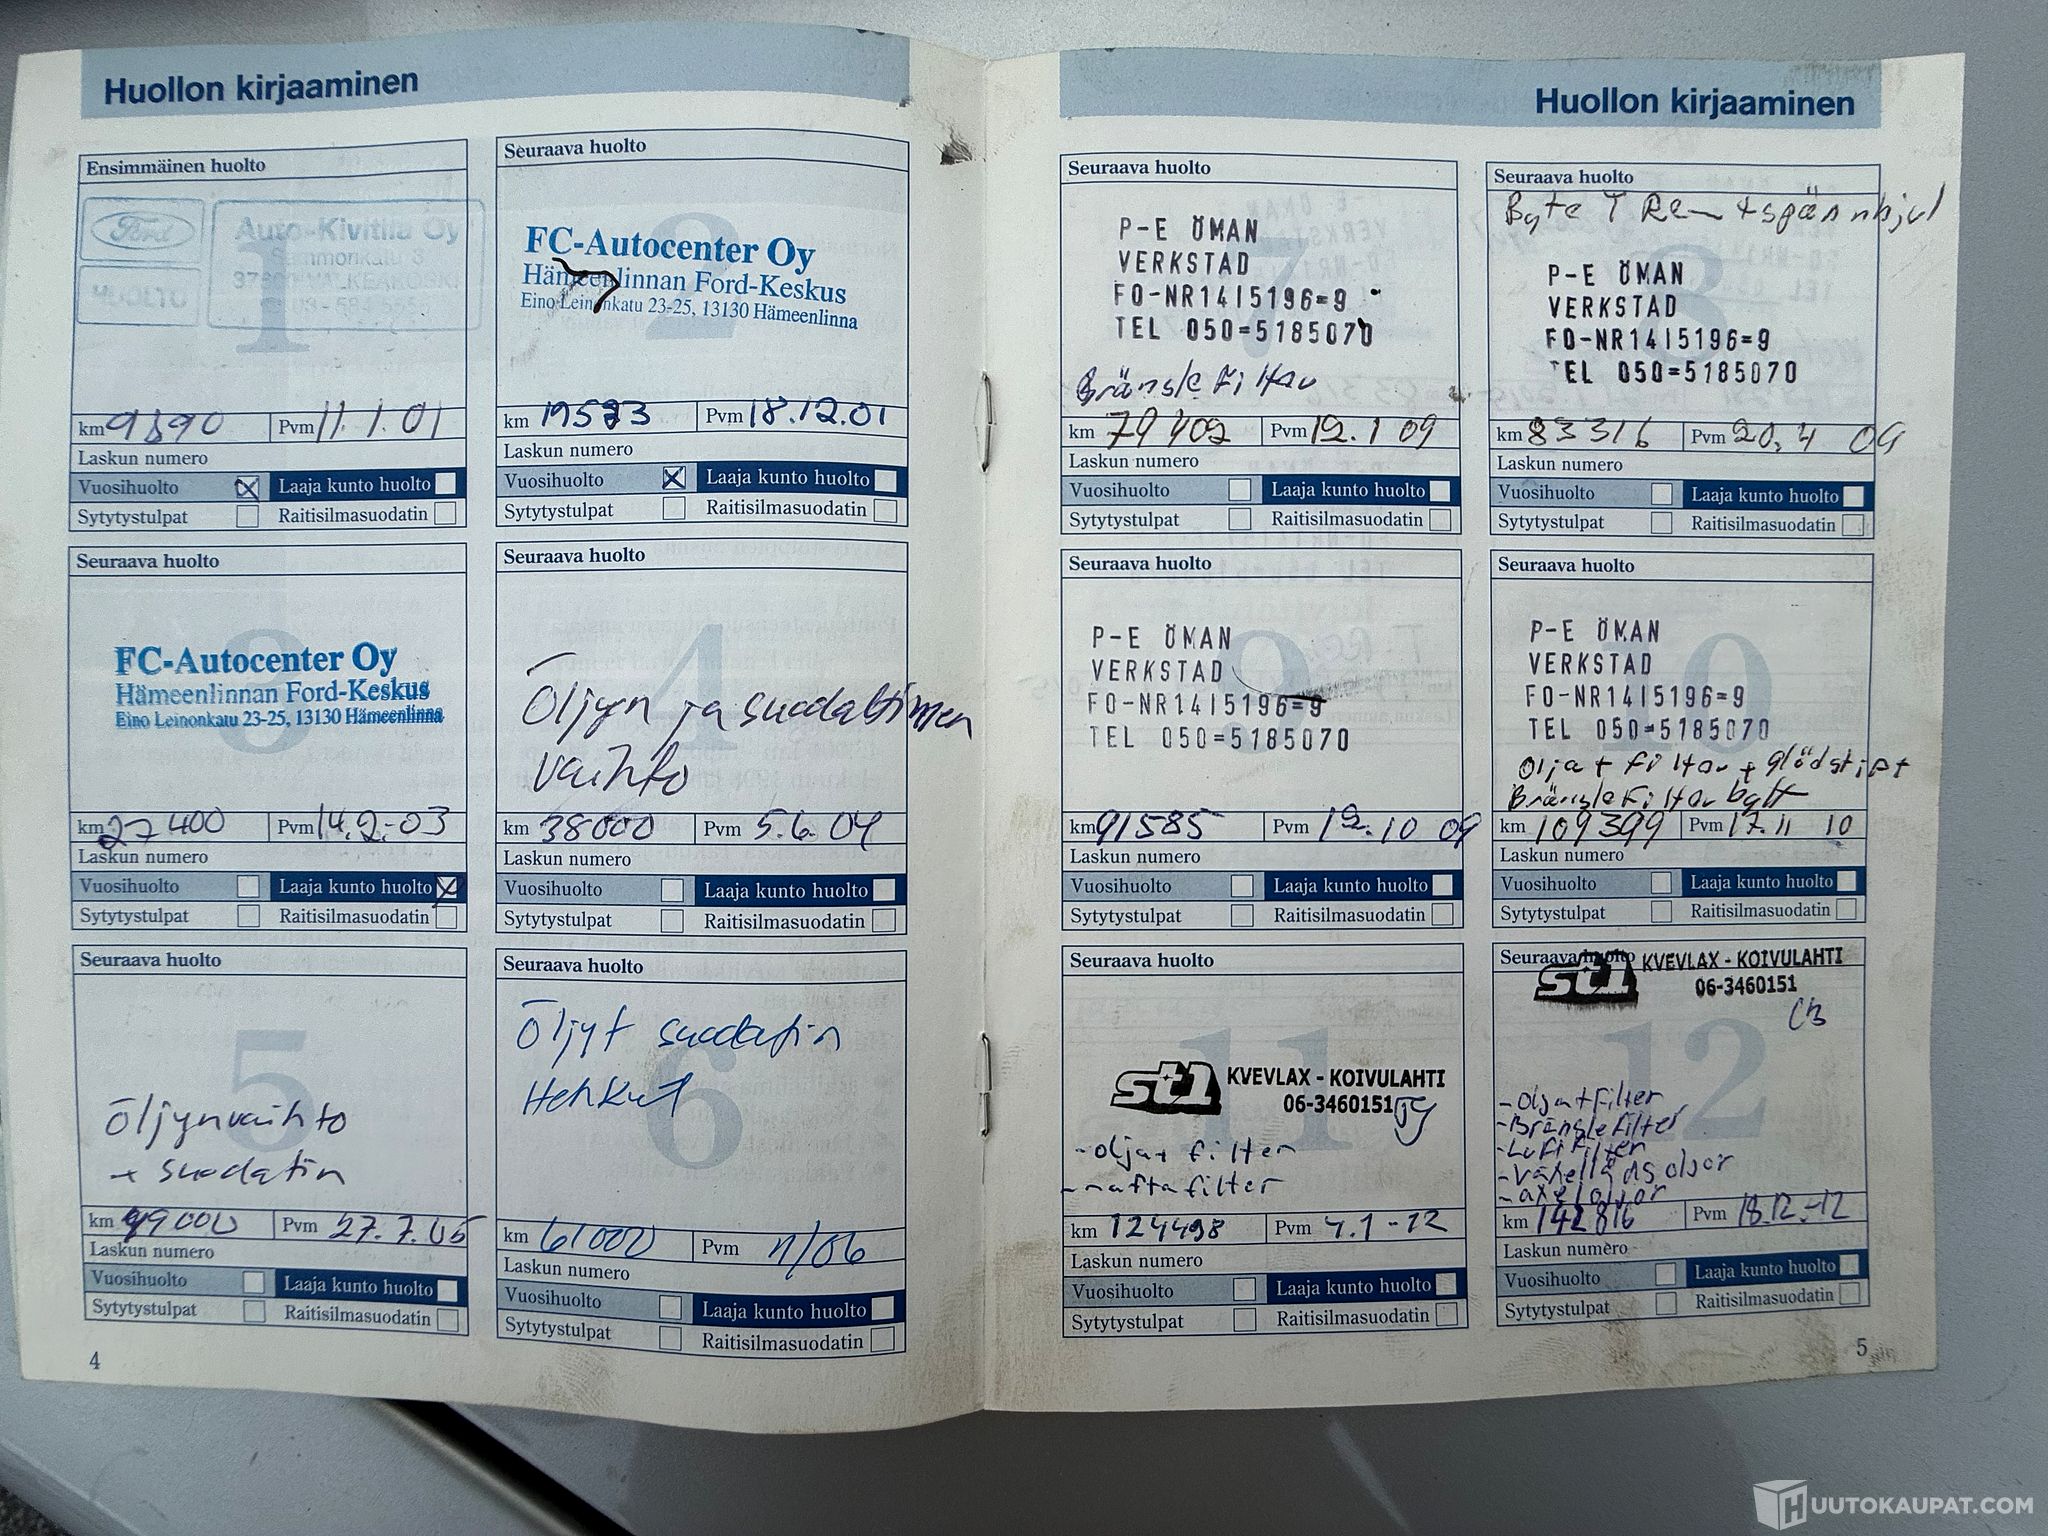 Huollon kirjaaminen
Ensimmäinen huolto
Ford
HUOLTO
Auto-Kivitila Oy
1
km 9890 Pvm 11.1.01
Laskun numero
Vuosihuolto Laaja kunto huolto
Sytytystulpat Raitisilmasuodatin
Seuraava huolto
2
FC-Autocenter Oy
Hämeenlinnan Ford-Keskus
Eino Leinonkatu 23-25, 13130 Hämeenlinna
km Pvm 18.12.01
Laskun numero
Vuosihuolto Laaja kunto huolto
Sytytystulpat Raitisilmasuodatin
Seuraava huolto
3
FC-Autocenter Oy
Hämeenlinnan Ford-Keskus
Eino Leinonkatu 23-25, 13130 Hämeenlinna
km 27400 Pvm 14.2.-03
Laskun numero
Vuosihuolto Laaja kunto huolto
Sytytystulpat Raitisilmasuodatin
Seuraava huolto
4
Öljyn ja suodattimen
vaihto
km 38000 Pvm 5.6.04
Laskun numero
Vuosihuolto Laaja kunto huolto
Sytytystulpat Raitisilmasuodatin
Seuraava huolto
5
Öljynvaihto
+ suodatin
km 49000 Pvm 27.7.05
Laskun numero
Vuosihuolto Laaja kunto huolto
Sytytystulpat Raitisilmasuodatin
Seuraava huolto
6
Öljyt suodatin
Hehkut
km 61000 Pvm 11/06
Laskun numero
Vuosihuolto Laaja kunto huolto
Sytytystulpat Raitisilmasuodatin
4
Huollon kirjaaminen
Seuraava huolto
7
P-E ÖMAN
VERKSTAD
FO-NR1415196=9
TEL 050=5185070
Bränsle Filtar
km 79402 Pvm 12.1 09
Laskun numero
Vuosihuolto Laaja kunto huolto
Sytytystulpat Raitisilmasuodatin
Seuraava huolto
8
Byte T Rem + spännhjul
P-E ÖMAN
VERKSTAD
FO-NR1415196=9
TEL 050=5185070
km 83316 Pvm 20.4 09
Laskun numero
Vuosihuolto Laaja kunto huolto
Sytytystulpat Raitisilmasuodatin
Seuraava huolto
9
P-E ÖMAN
VERKSTAD
FO-NR1415196=9
TEL 050=5185070
km 91585 Pvm 12.10 09
Laskun numero
Vuosihuolto Laaja kunto huolto
Sytytystulpat Raitisilmasuodatin
Seuraava huolto
10
P-E ÖMAN
VERKSTAD
FO-NR1415196=9
TEL 050=5185070
Olja + Filtar + glödstift
Bränsle Filtar bytt
km 109399 Pvm 17.11 10
Laskun numero
Vuosihuolto Laaja kunto huolto
Sytytystulpat Raitisilmasuodatin
Seuraava huolto
11
st1 KVEVLAX - KOIVULAHTI
06-3460151
- olja + filter
- naftafilter
km 124498 Pvm 4.1-12
Laskun numero
Vuosihuolto Laaja kunto huolto
Sytytystulpat Raitisilmasuodatin
Seuraava huolto
12
st1 KVEVLAX - KOIVULAHTI
06-3460151
CB
- Olja + filter
- Bränslefilter
- Luftfilter
- växellådsoljor
- axeloljor
km 142816 Pvm 18.12.-12
Laskun numero
Vuosihuolto Laaja kunto huolto
Sytytystulpat Raitisilmasuodatin
5
HUUTOKAUPAT.COM